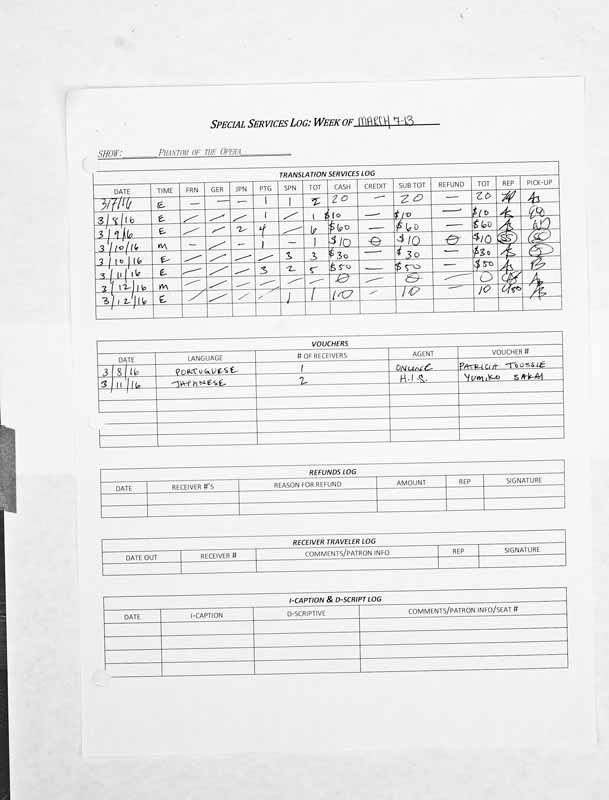 SPECIAL SERVICES LOG: WEEK OF MARCH 7-13
SHOW: PHANTOM OF THE OPERA
TRANSLATION SERVICES LOG
DATE TIME FRN GER JPN PTG SPN TOT CASH CREDIT SUB TOT REFUND TOT REP PICK-UP
3/7/16 E — — — 1 1 2 20 — 20 — 20
3/8/16 E / / / 1 / 1 $10 — $10 — $10
3/9/16 E / / 2 4 / 6 $60 — $60 — $60
3/10/16 M — / — 1 — 1 $10 0 $10 0 $10
3/10/16 E / / / / 3 3 $30 — $30 — $30
3/11/16 E / / / 3 2 5 $50 — $50 — $50
3/12/16 M / / / / / / 0 — 0 — 0
3/12/16 E / / / / 1 1 10 — 10 — 10
VOUCHERS
DATE LANGUAGE # OF RECEIVERS AGENT VOUCHER #
3/8/16 PORTUGUESE 1 ONLINE PATRICIA TOUSSIE
3/11/16 JAPANESE 2 H.I.S. YUMIKO SAKAI
REFUNDS LOG
DATE RECEIVER #'S REASON FOR REFUND AMOUNT REP SIGNATURE
RECEIVER TRAVELER LOG
DATE OUT RECEIVER # COMMENTS/PATRON INFO REP SIGNATURE
I-CAPTION & D-SCRIPT LOG
DATE I-CAPTION D-SCRIPTIVE COMMENTS/PATRON INFO/SEAT #